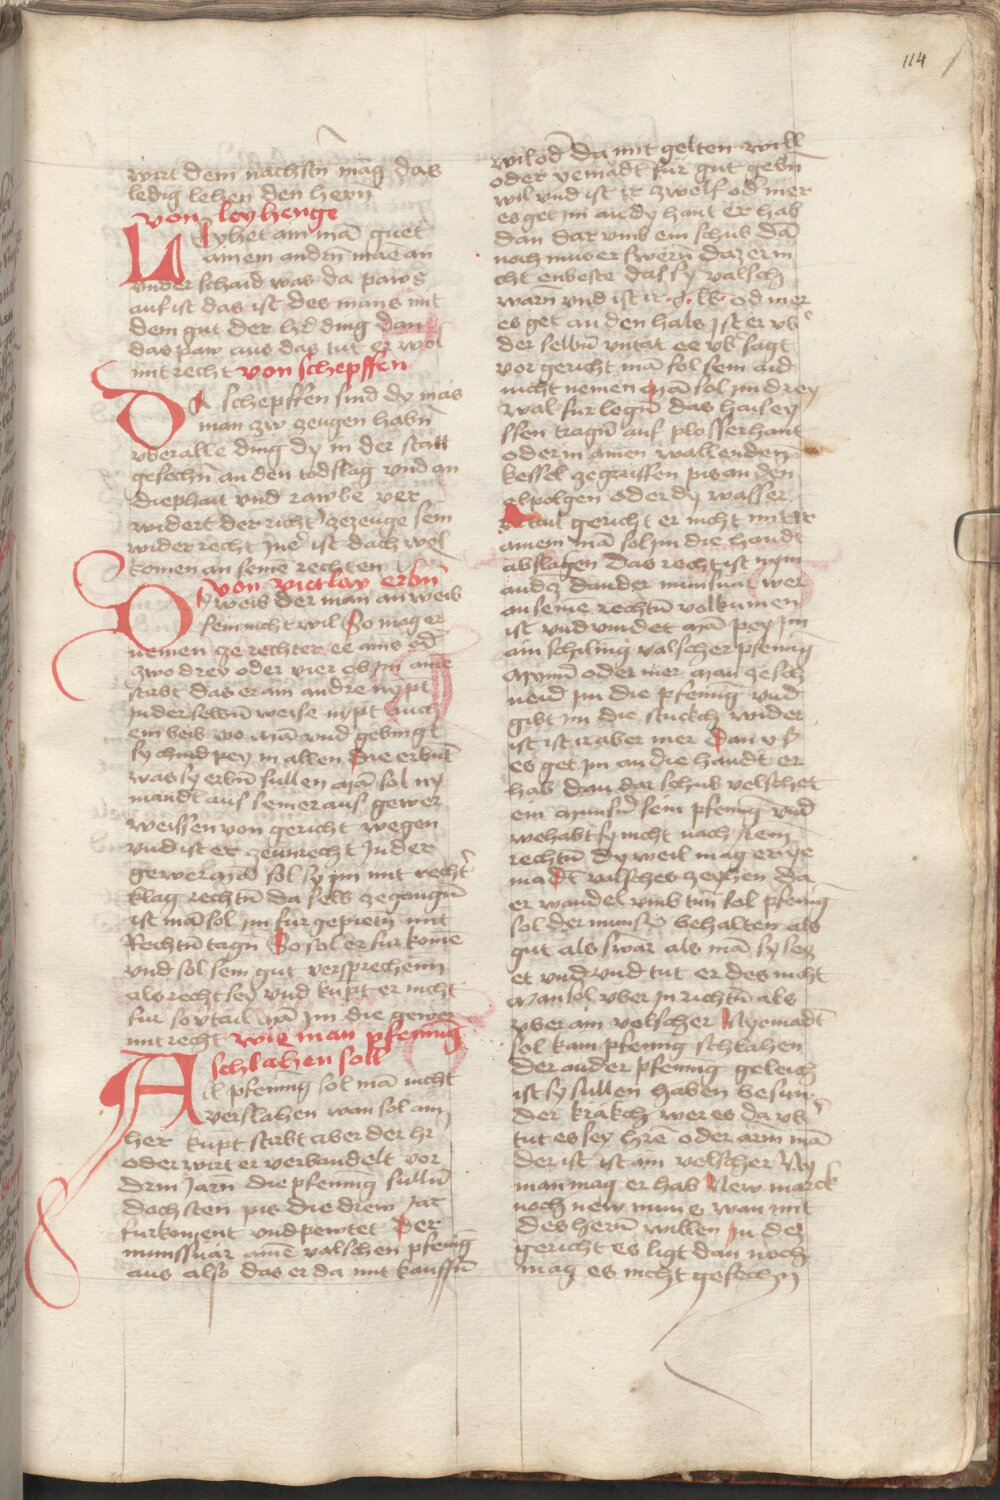 114
wirt dem nachstn̄ māg das
ledig lehen den hern̄
von leyhenge
Leyhet ain mā guet
ainem andern mañ an
vnderschaid was da paws
auf ist das ist des mans mit
dem gut der hr̄ ding dan
das paw aus das tut er wol
mit recht von schepffen
Da schepffen sind dy mās
man zw zeugen habn̄
vber alle ding dy in der statt
geschechn̄ an den todslag vnd an
diephait vnd rawbe ver
widert der richt' ze zeuge sein
wider recht Jne' ist doch wol
komen an seinē rechten
von vierlay erbn̄
Dy weis der man an weib
sein nicht wil So mag er
nemen ze rechter ee ains od'
zwo drey oder vier ob im aine
stirbt das er ain andre nympt
In der selbn̄ weise nympt auch
ein weib wo mā vnd gebingt
sy chind pey in allen die erbnt
was sy erbn̄ sullen mā sol ny
mandt aus seiner aus gewer
weissen von gericht wegen
vnd ist er ze unrecht In der
gewer mā sol sy im mit recht'
klag rechtn̄ da selb ze gangn̄
ist mā sol im fur gepietn̄ mit
Rechtn̄ tagn̄ So sol er fur komē
vnd sol sein gut versprechenn
als recht sey vnd kupt er nicht
fur so v'tail mā im die gewer
mit recht wie man pfennig
schlahen soll
All pfennīg sol mā nicht
verslahen wan so ain
her kupt stirbt aber der hr
oder wirt er verbandelt vor
drin Jarn̄ die pfennīg sulln̄
doch sten pis die drew Jar
furkoment vnd pewtet der
munssnār ainē valschen pfenīg
aus also das er da mit kauffn̄
wil od' da mit gelten will
oder yemādt fur gut gebn̄
wil vnd ist ir zwelf od' mer
es get im an dy hant er hab
dan dar vmb ein schub dā
noch mus er swern daz er in
cht enbeste das sy valsch
warn̄ vnd ist ir od mer
es get an den hals Ist er vb'
der selbn̄ vntat ee vb' sagt
vor gericht mā sol sein aid
nicht nemen mā sol im drey
wal fur legn̄ das haisey
ssen tragn̄ auf plosser hant
oder in ainen wallenden
kessel ze greiffen pis an den
elpolgen oder dy wasser
vrtail gericht er nicht mit
ainem mā sol im die handt
abslagen Das recht ist nym
andz dan der munsnār wer
an seinē rechtn̄ volkumen
ist vnd vindet mā pey im
ain schiling valscher pfennīg
Mynn̄ oder mer man zesch
neid im die pfennīg vnd
gibt im die stuckch wider
ist ist ir aber mer dan v ß
es get im an die handt er
hab dan dar schub velschet
ein munsn̄ sein pfennīg vnd
wehabt sy nicht nach sein
rechtn̄ dy weil mag er ye
madt valsches zeyhen da
er wandel vmb tun̄ sol pfenīg
sol der munser behalten als
gut als swar als mā sy sez
et vnd vnd tut er des nicht
Man sol vber in richtn̄ als
vber ain velscher Nyemādt
sol kain pfennīg schlahen
der ander pfennīg geleich
ist sy sullen haben besun
der krakch wer es da vb'
tut es sey hrē oder arm mā
der ist ist ain velscher Ny
man mag er hab New marck
noch new munss wan mit
des hern̄ willen In dez
gericht es ligt dan noch
mag es nicht geschechn